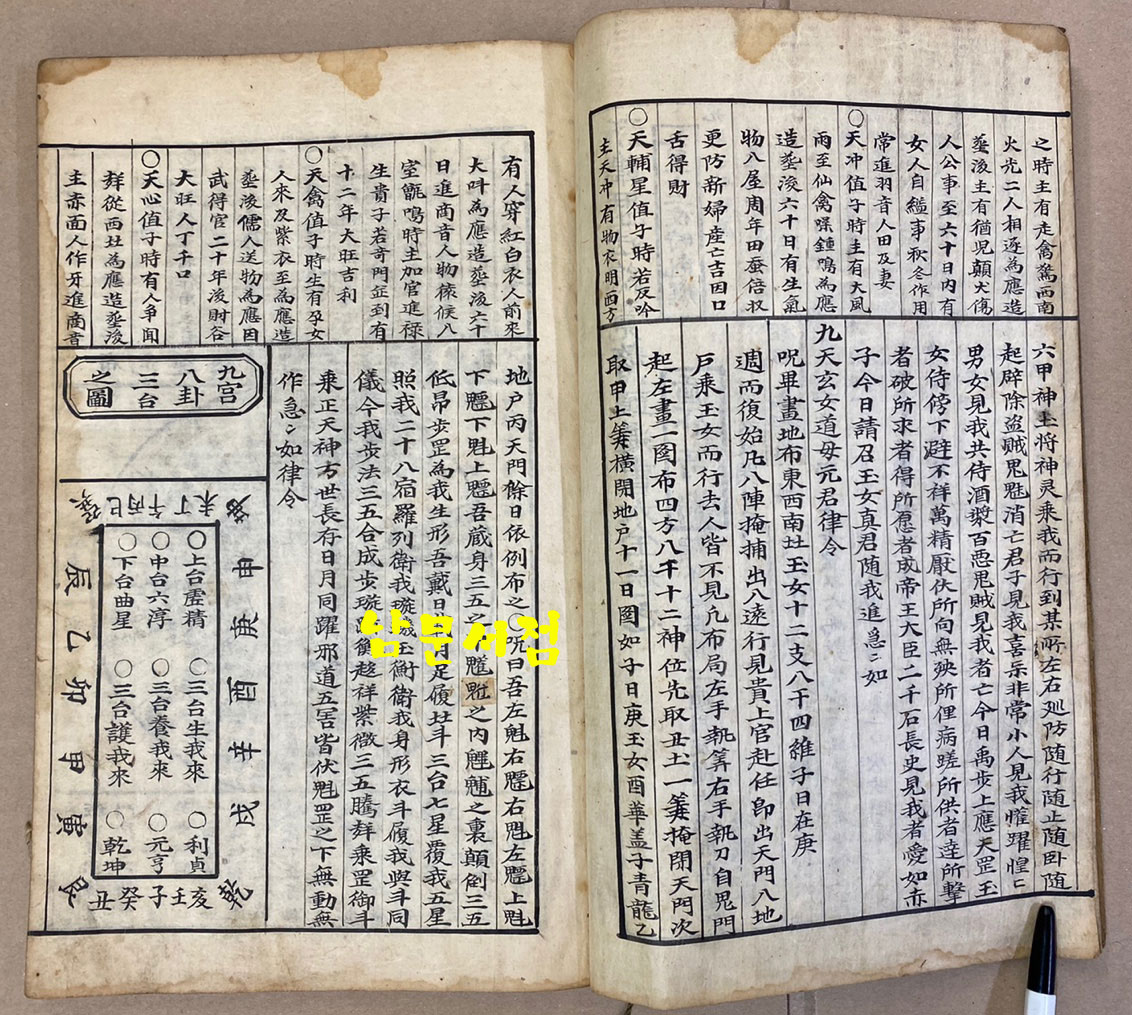 之時主有走禽驚西南
火光二人相逐為應造
塟浚主有猶児顛犬傷
人公事至六十日内有
女人自縊事秋冬作用
常進羽音人田及妻
〇天冲值子時主有大風
雨至仙禽噪鍾鳴為應
造塟浚六十日有生氣
物入屋周年田蚕倍収
更防新婦産亡吉因口
舌得財
〇天輔星值子時若反吟
主天冲有物衣明西方
六甲神王将神灵乘我而行到某所左右廵防随行随止随卧随
起辟除盗賊鬼魅消亡君子見我喜樂非常小人見我懼躍惶〻
男女見我共侍酒漿百悪鬼賊見我者亡今日禹步上應天罡玉
女侍傍下避不祥萬精厭伏所向無殃所俚病蹉所供者逹所撃
者破所求者得所愿者成帝王大臣二千石長史見我者愛如赤
子今日請召玉女真君随我進急〻如
九天玄女道母元君律令
呪畢畫地布東西南北玉女十二支八干四維子日在庚
週而復始凡八陣掩捕出入逺行見貴上官赴任即出天門入地
戸乘玉女而行去人皆不見凡布局左手執筭右手執刀自鬼門
起左畫一圈布四方八千十二神位先取丑土一筭掩閉天門次
取甲土筭横閉地戸十一日图如子日庚玉女酉華盖子青龍乙
有人穿紅白衣人前來
大叶為應造塟浚六十
日進商音人物猿候入
室甑鳴時主加官進禄
生貴子若竒門㱏到有
十二年大旺吉利
〇天禽值子時生有孕女
人來及紫衣至為應造
塟浚儒人送物為應因
武得官二十年浚財谷
大旺人丁千口
〇天心值子時有人争闻
群從西北為應造塟浚
主赤面人作牙進商音
地户丙天門餘日依例布之〇呪曰吾左魁右魓右魁左魓上魁
照我二十八宿羅列衛我璇璣玉衡衛我身形衣斗履我與斗同
乘正天神方世長存日月同躍邪道五害皆伏魁罡之下無動無
作急〻如律令
九宫
八卦
三台
之圖
巽巳丙午丁未坤
辰乙卯甲寅艮
申庚酉辛戌
〇上台虚精 〇三台生我來 〇利貞
〇中台六淳 〇三台養我來 〇元亨
〇下台曲星 〇三台護我來 〇乾坤
丑癸子壬亥乾
남문서점